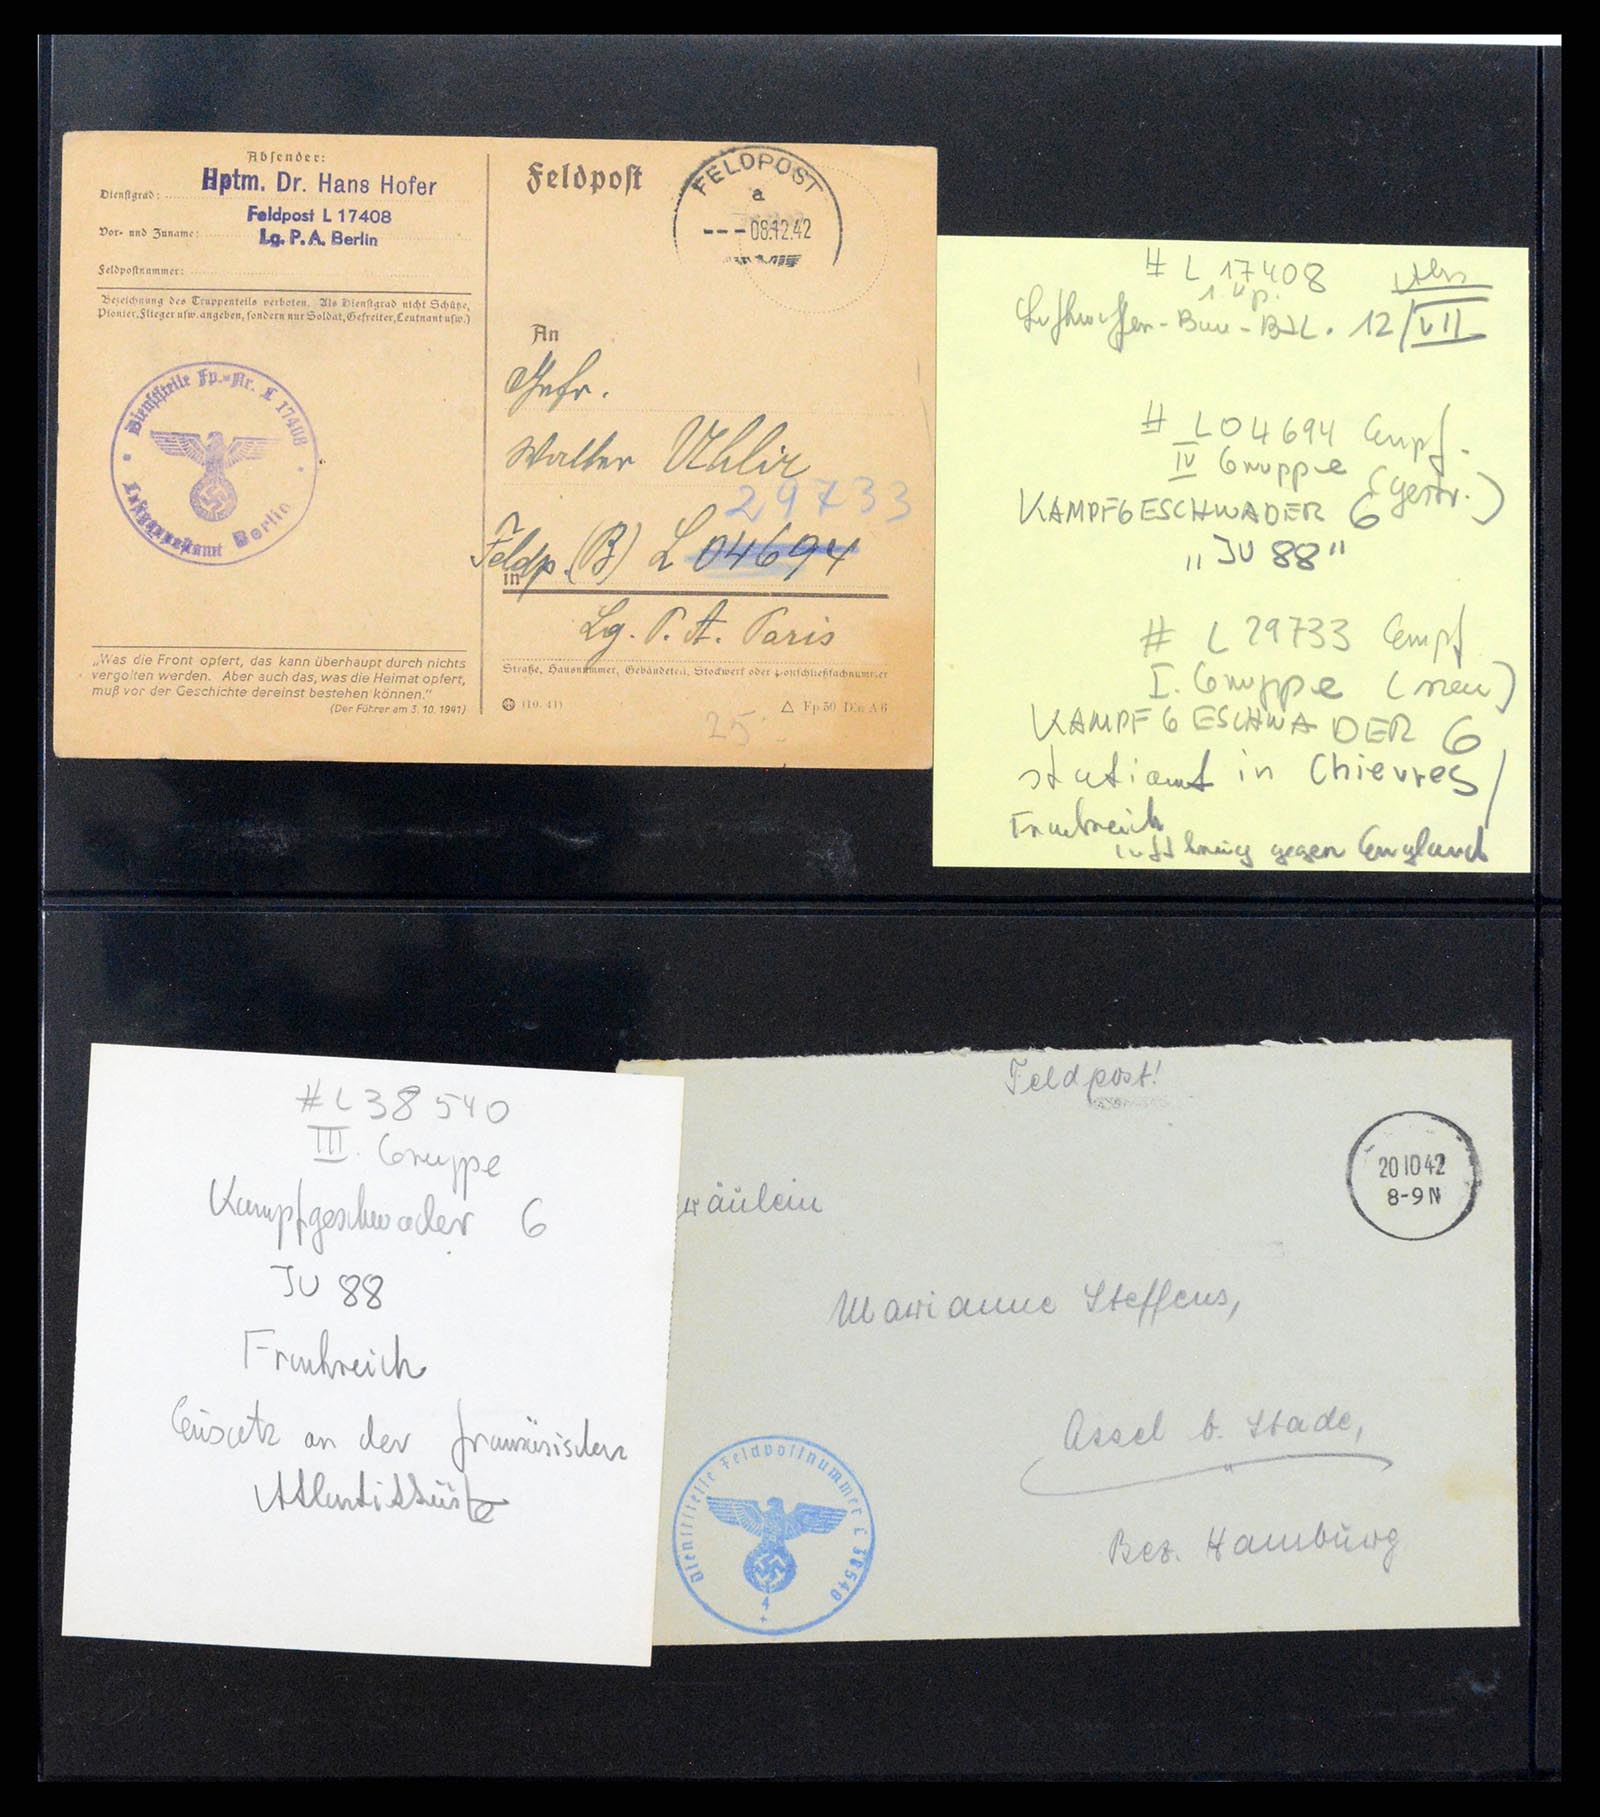 Absender:
Hptm. Dr. Hans Hofer
Dienstgrad:
Feldpost L 17408
Vor- und Zuname:
Lg. P. A. Berlin
Feldpostnummer:
Bezeichnung des Truppenteils verboten. Als Dienstgrad nicht Schütze,
Pionier, Flieger usw. angeben, sondern nur Soldat, Gefreiter, Leutnant usw.)
Dienststelle Fp.-Nr. L 17408
Luftgaupostamt Berlin
„Was die Front opfert, das kann überhaupt durch nichts
vergolten werden. Aber auch das, was die Heimat opfert,
muß vor der Geschichte dereinst bestehen können."
(Der Führer am 3. 10. 1941)
Feldpost
FELDPOST
a
---08.12.42
An
Gefr.
Walter Uhlir
29733
Feldp. (B) L 04694
in
Lg. P. A. Paris
Straße, Hausnummer, Gebäudeteil, Stockwerk oder Postschließfachnummer
(10. 41)
Fp 50 Din A 6
25
# L 17408 Abs
1. Kp.
Luftwaffen-Bau-Btl. 12/VII
# L04694 Empf.
IV Gruppe (gestr.)
KAMPFGESCHWADER 6
„JU 88"
# L 29733 Empf
I. Gruppe (neu)
KAMPFGESCHWADER 6
stationt in Chievres/
Frankreich
Luftkrieg gegen England
# L 38540
III. Gruppe
Kampfgeschwader 6
JU 88
Frankreich
Einsatz an der französischen
Atlantikküste
Feldpost!
20 10 42
8-9 N
räulein
Marianne Steffens,
Assel b. Stade,
Bez. Hamburg
Dienststelle Feldpostnummer L 38540
4